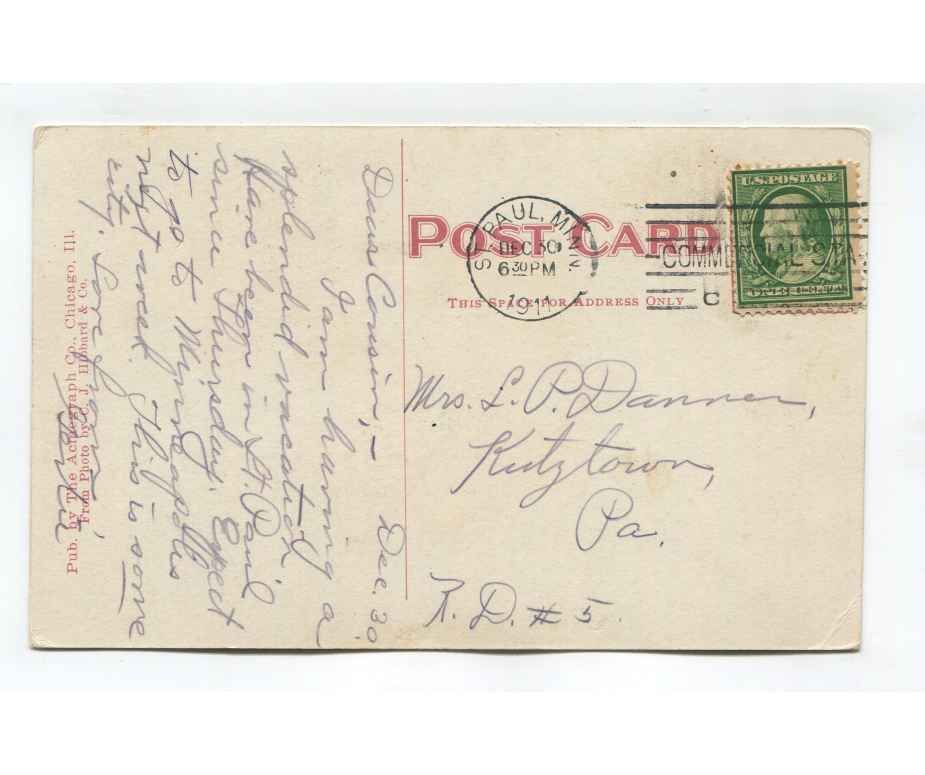 Dear Cousin, – Dec. 30.
I am having a
splendid vacation
Have been in St. Paul
since Thursday. Expect
to go to Minneapolis
next week. This is some
city. Love from
POST CARD
THIS SPACE FOR ADDRESS ONLY
ST. PAUL, MINN.
DEC 30
6 30 PM
1911
U.S. POSTAGE
COMMERCIAL STA
C
Mrs. L. P. Danner,
Kutztown,
Pa.
R. D. # 5.
Pub. by The Acmegraph Co., Chicago, Ill.
From Photo by C. J. Hibbard & Co.